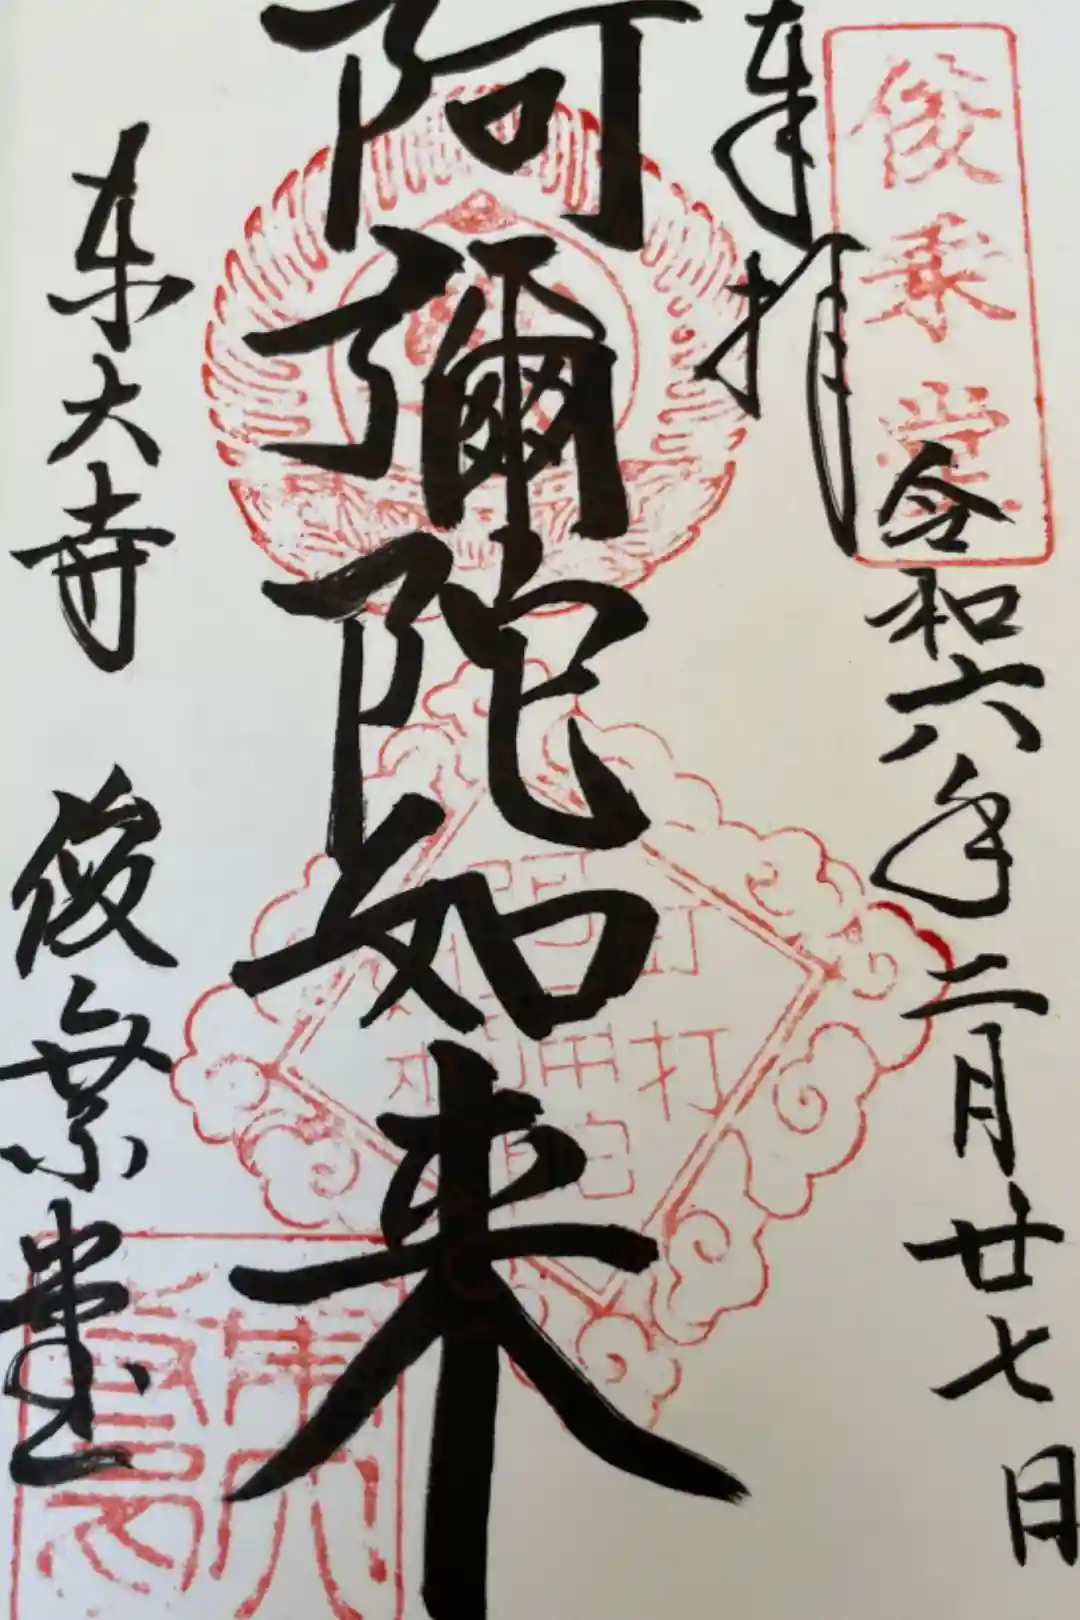 俊乗堂
奉拝
令和六年二月廿七日
阿彌陀如来
東大寺 俊乗堂